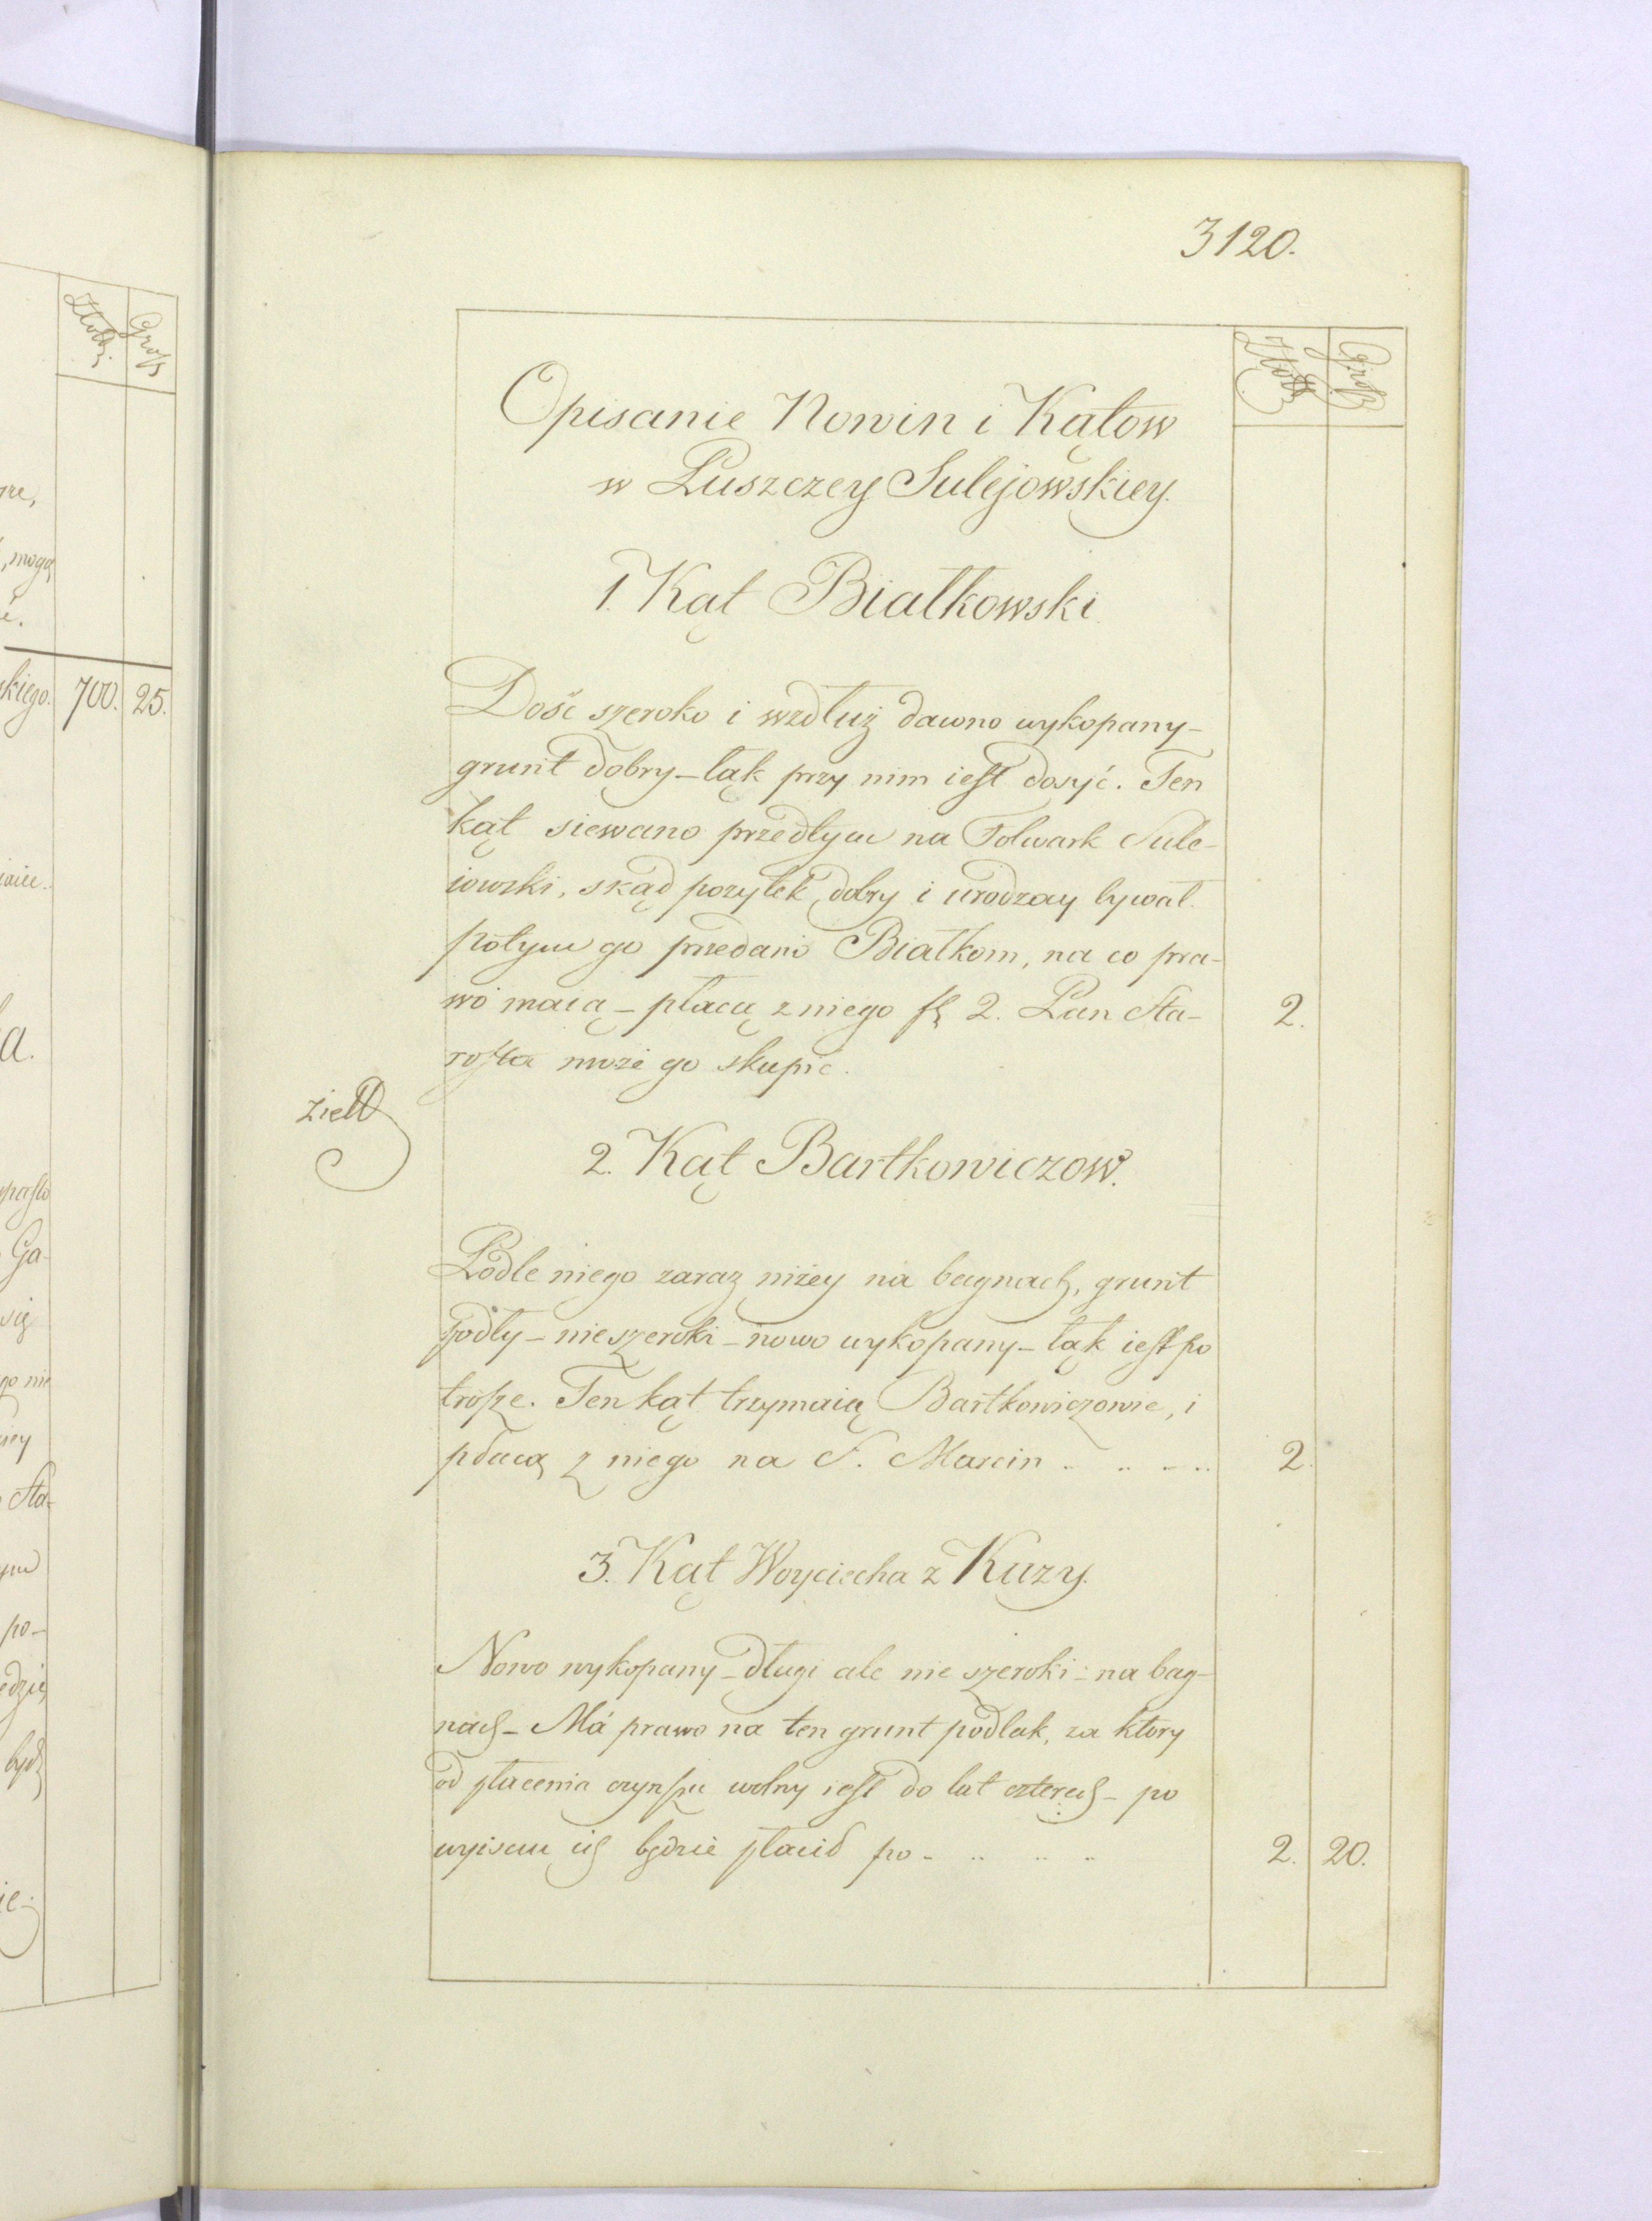 3120.
Złott. Gross
Opisanie Nowin i Kątow
w Puszczey Sulejowskiey.
1. Kąt Białkowski.
Dość szeroko i wzdłuż dawno wykopany -
grunt dobry - łąk przy nim iest dosyć. Ten
kąt siewano przedtym na Folwark Sule-
iowski, skąd pozytek dobry i urodzay bywał.
potym go przedano Białkom, na co pra-
wo maią - płacą z niego fl 2. Pan Sta- 2.
rosta może go skupić.
zieD
2. Kąt Bartkowiczow.
Podle niego zaraz niżey na bagnach, grunt
podły - nie szeroki - nowo wykopany - łąk iest po
trosze. Ten kąt trzymaią Bartkowiczowie, i
płacą z niego na S. Marcin . .. .. .. 2.
3. Kąt Woyciecha z Kuzy.
Nowo wykopany - długi ale nie szeroki - na bag-
nach - Má prawo na ten grunt podlak, za ktory
od płacenia czynszu wolny iest do lat czterech - po
wyisciu ich będzie płacił po - .. .. .. 2. 20.
Złott. Gross
re,
, mogą
skiego. 700. 25.
a.
Ga-
się
go nie
Sta-
po-